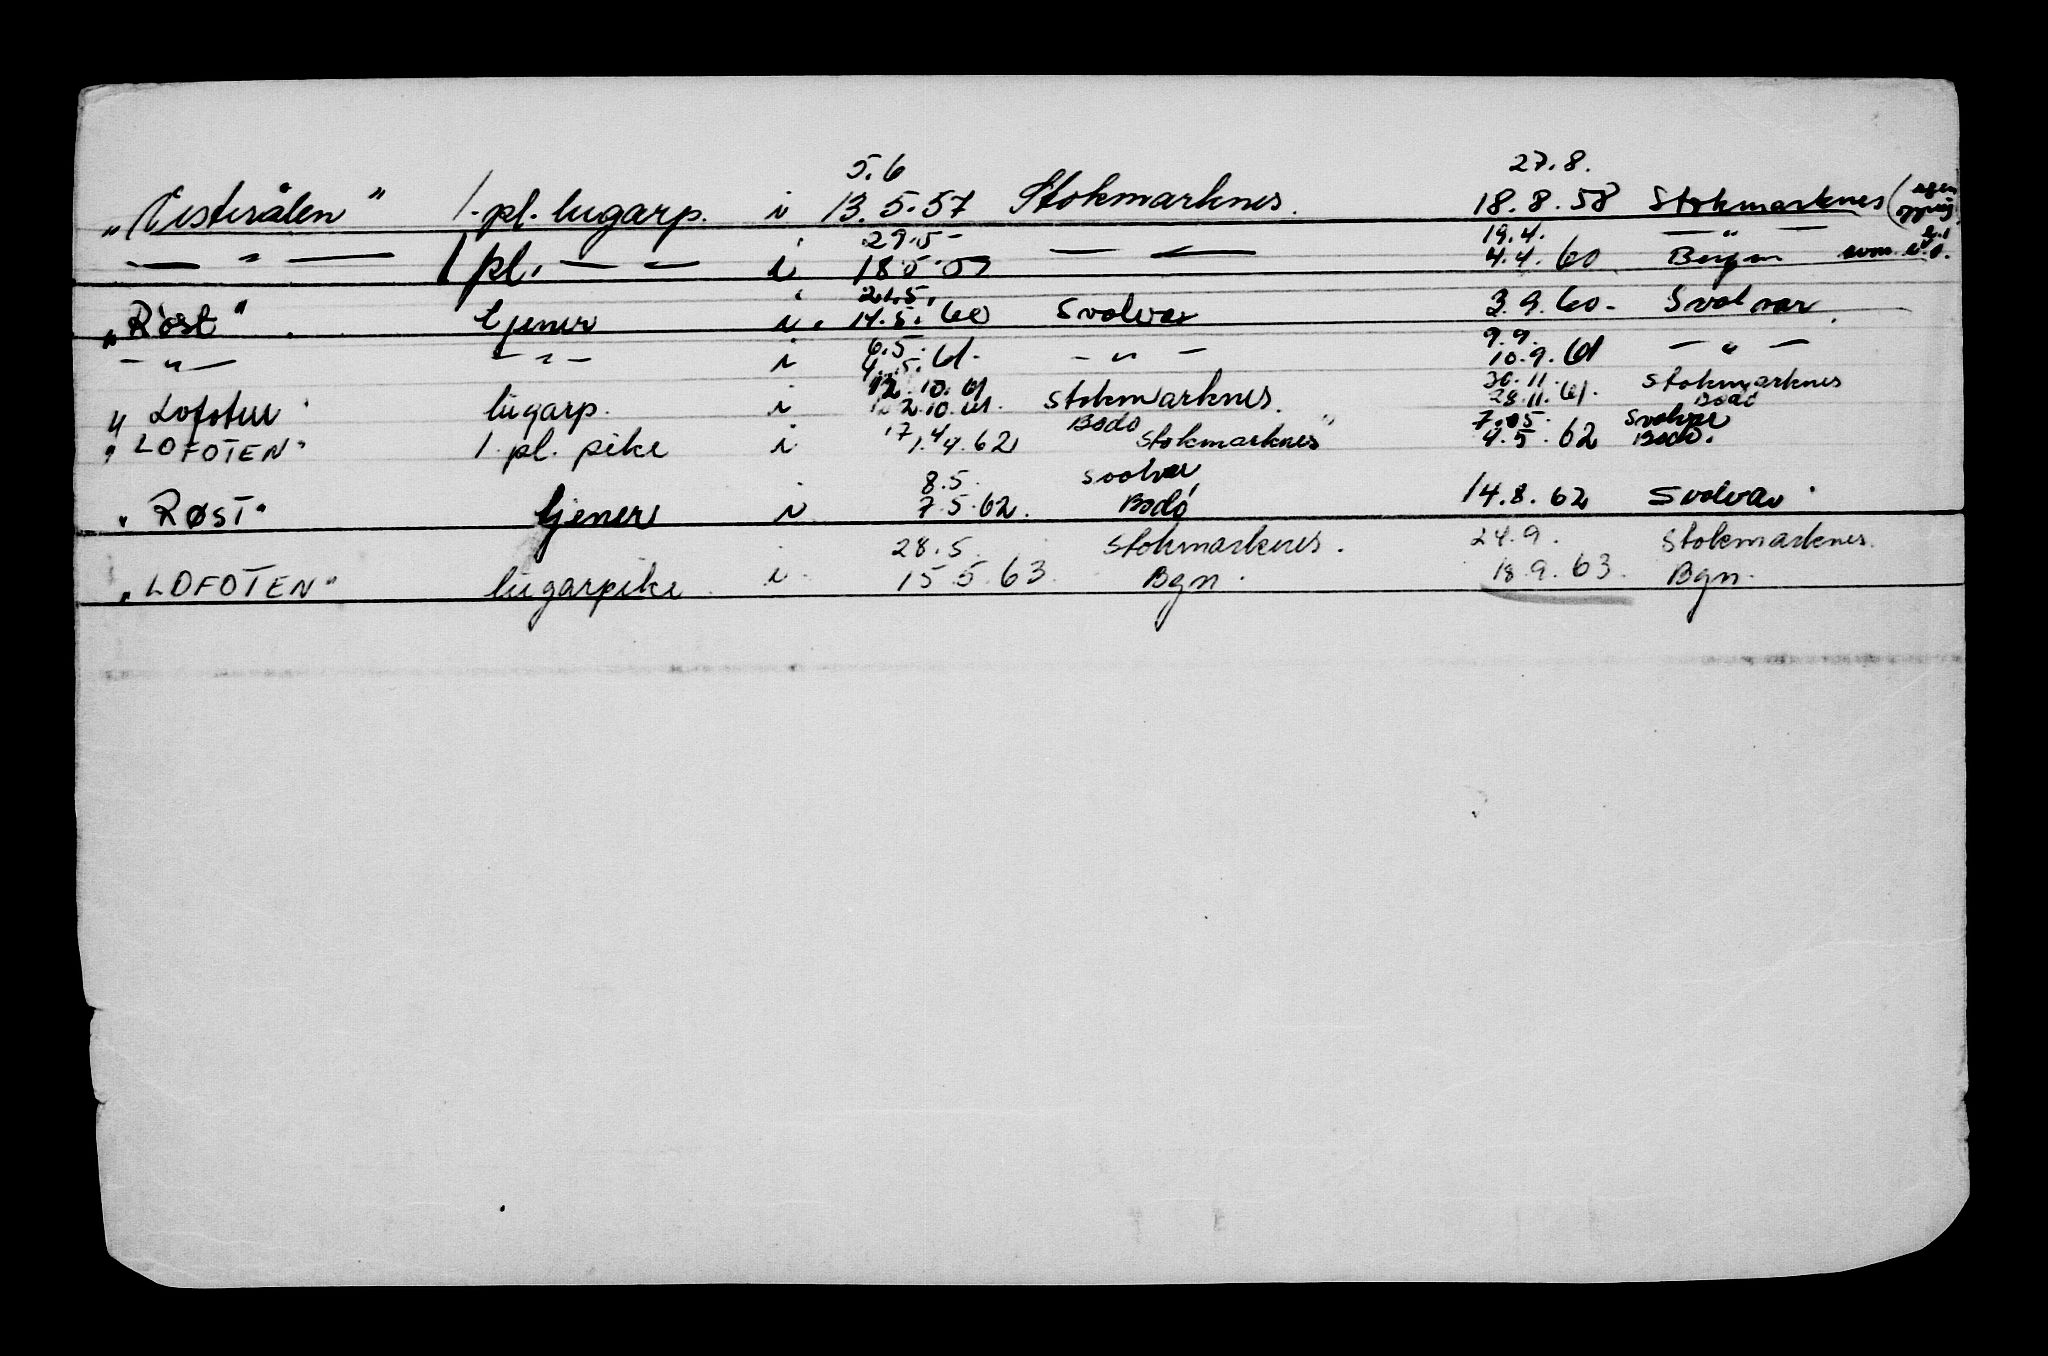 5.6 27.8.
„Vesterålen" 1. pl. lugarp. i 13.5.57 Stokmarknes. 18.8.58 Stokmarknes (egen
29.5 19.4. — " —
— " — 1 pl. — — i 18.5. — " — 4.4.60 Bergen
21.5.
„Røst" tjener i. 14.5.60 Svolvær 3.9.60. Svolvær.
6.5. 9.9.
— " — — " — i 4.5.61. — " — 10.9.61 — " —
12.10.61 30.11. Stokmarknes
„Lofoten lugarp. i 2.10.61. Stokmarknes. 28.11.61. Bodø
17.4 Bodø 7.5. Svolvær
„LOFOTEN" 1. pl. pike i 1.4.62 Stokmarknes" 4.5.62 Bodø.
8.5. Svolvær
„RØST" tjener i 7.5.62. Bodø 14.8.62 Svolvær
28.5. Stokmarknes. 24.9. Stokmarknes.
„LOFOTEN" lugarpike i 15.5.63. Bgn. 18.9.63. Bgn.